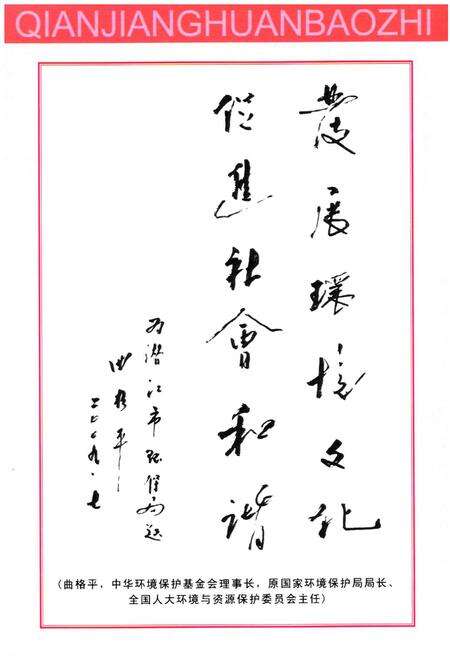 QIANJIANGHUANBAOZHI
發展環境文化
促進社會和谐
为潜江市环保局题
曲格平
二〇〇九·七
(曲格平，中华环境保护基金会理事长，原国家环境保护局局长、
全国人大环境与资源保护委员会主任)